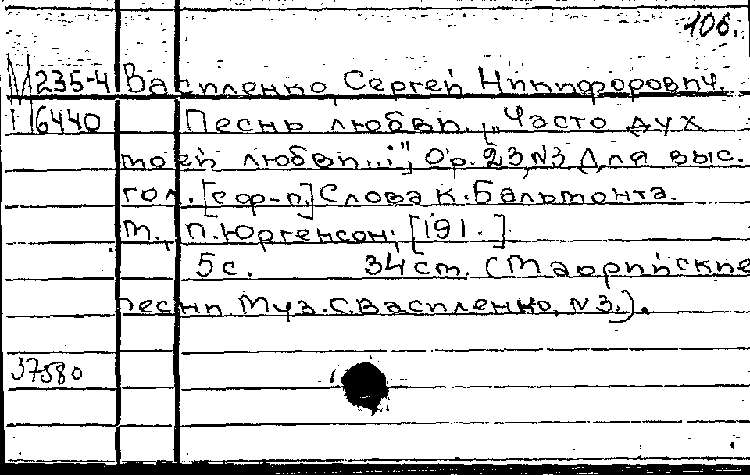 106.
М 235-4 Василенко, Сергей Никифорович.
П 6440 Песнь любви. "Часто дух
моей любви...", Op. 23, №3 Для выс.
гол. [с фр-п.] Слова К. Бальмонта.
М., П. Юргенсон, [191.].
5 с. 34 см. (Маорийские
песни Муз. С. Василенко, №3.).
37580